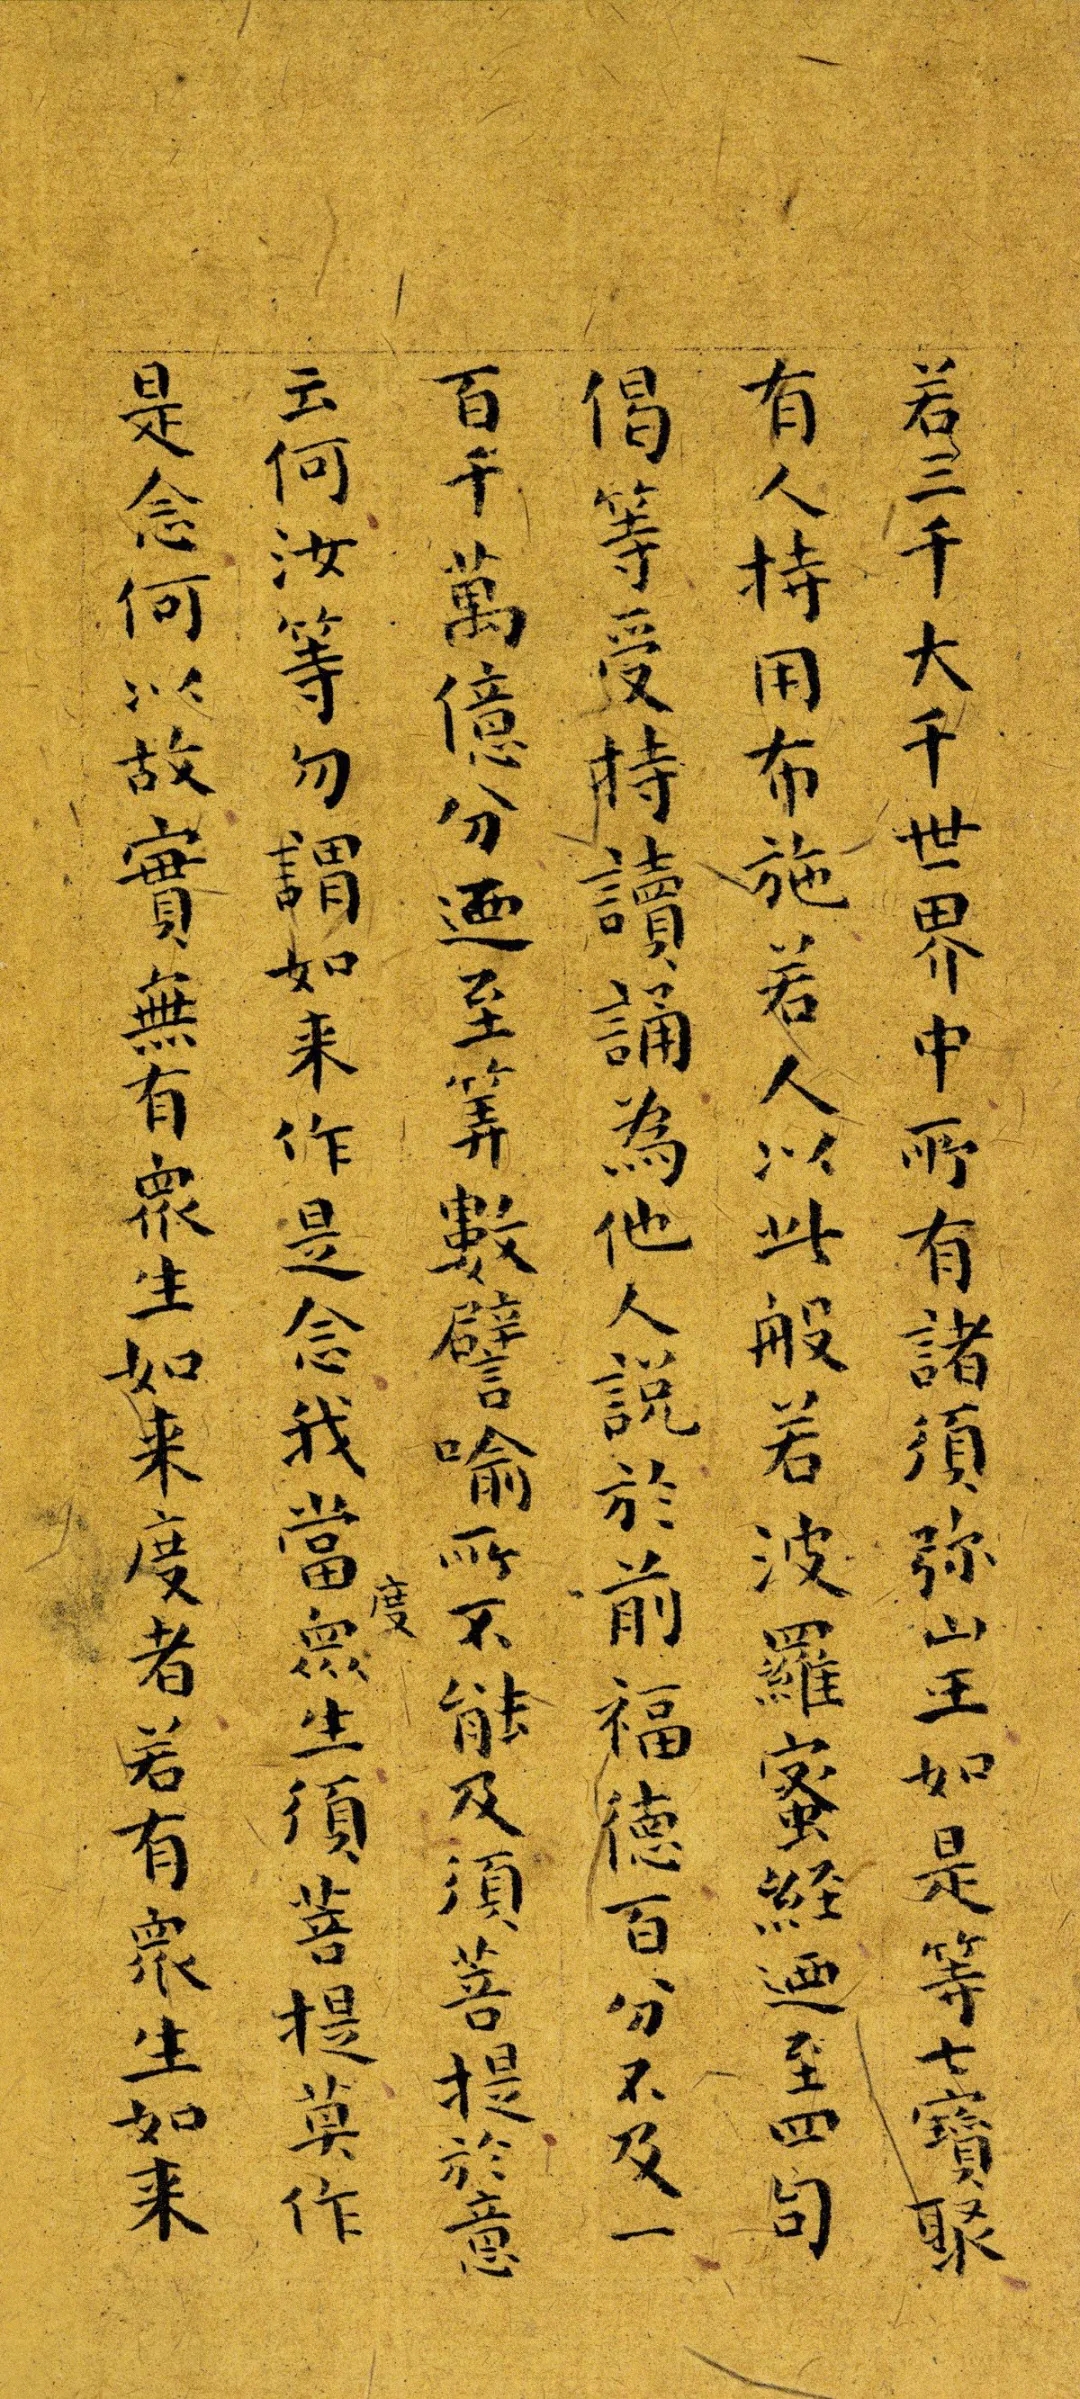 若三千大千世界中所有諸須弥山王如是等七寶聚
有人持用布施若人以此般若波羅蜜經迺至四句
偈等受持讀誦為他人說於前福德百分不及一
百千萬億分迺至筭數譬喻所不能及須菩提於意
云何汝等勿謂如来作是念我當度衆生須菩提莫作
是念何以故實無有衆生如来度者若有衆生如来